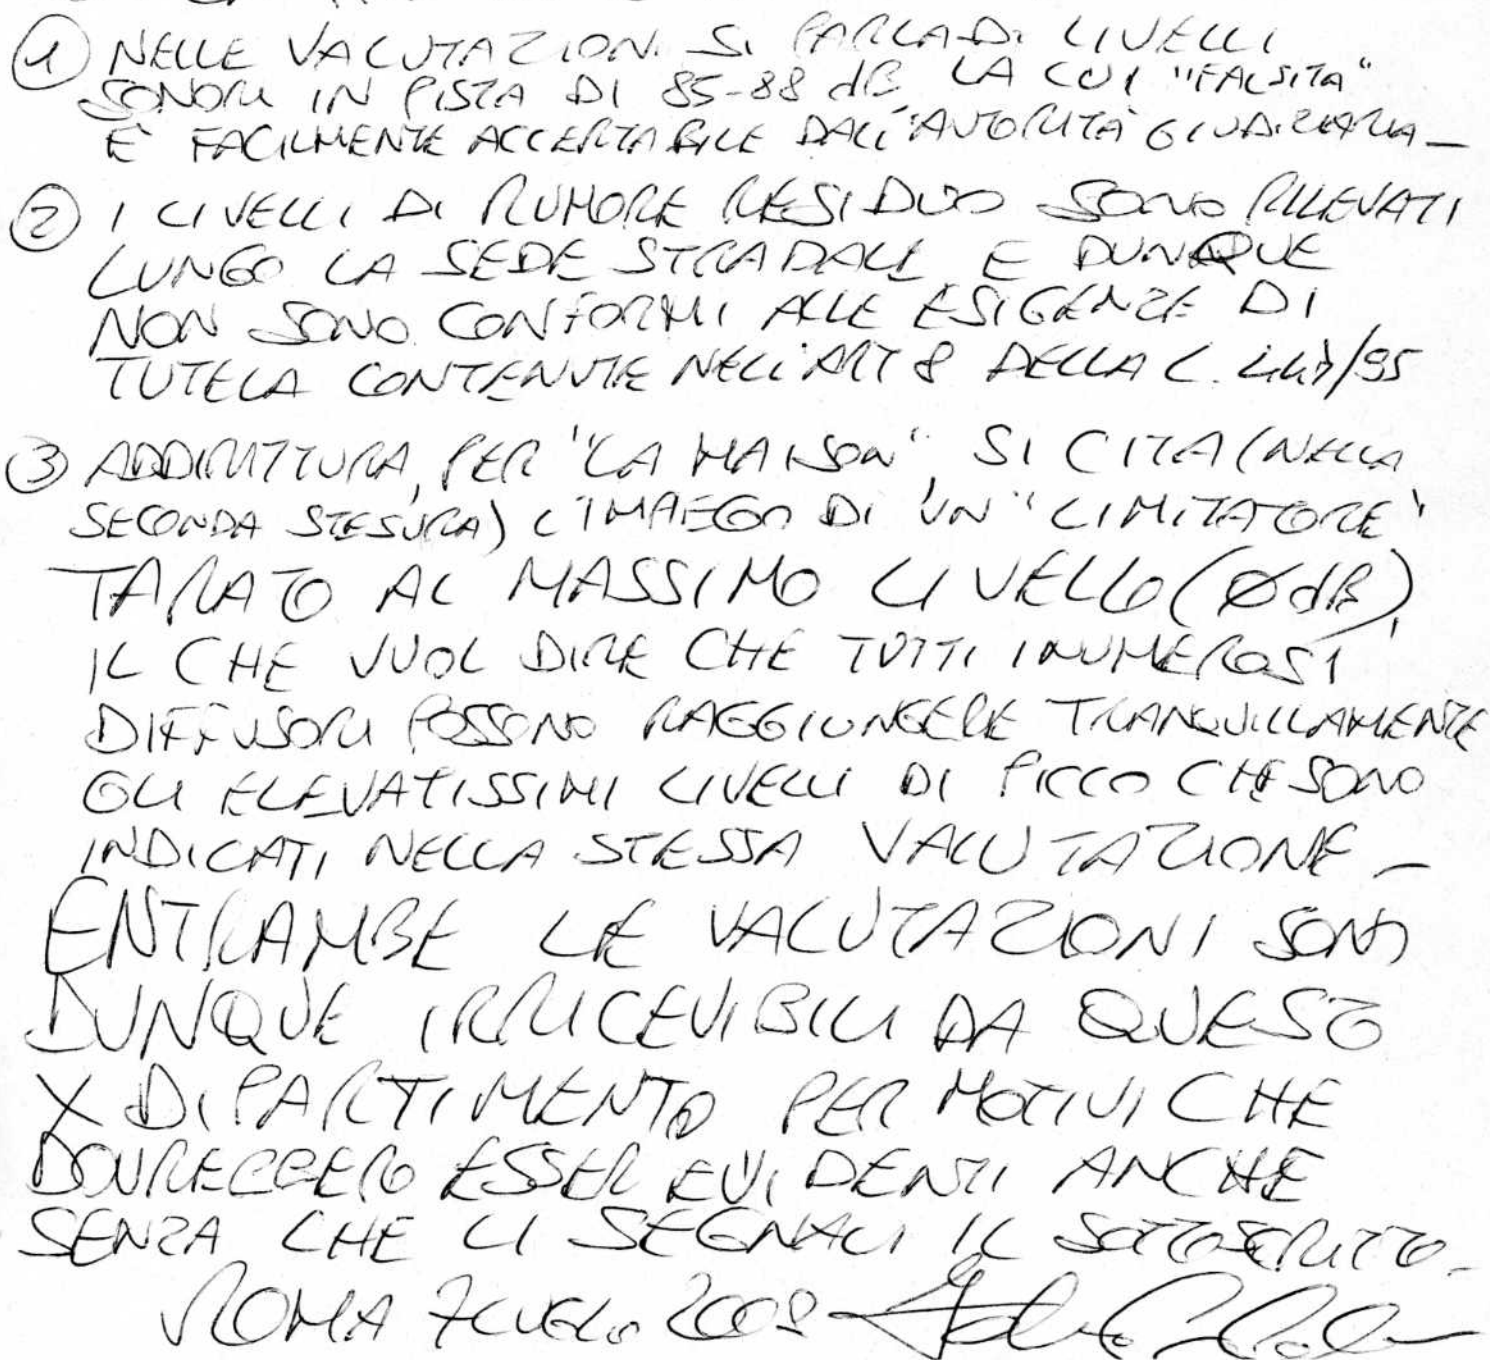 ① NELLE VALUTAZIONI SI PARLA DI LIVELLI
SONORI IN PISTA DI 85-88 dB LA CUI "FALSITA"
E' FACILMENTE ACCERTABILE DALL'AUTORITA' GIUDIZIARIA_
② I LIVELLI DI RUMORE RESIDUO SONO RILEVATI
LUNGO LA SEDE STRADALE E DUNQUE
NON SONO CONFORMI ALLE ESIGENZE DI
TUTELA CONTENUTE NELL'ART 8 DELLA L. 447/95
③ ADDIRITTURA, PER "LA MAISON", SI CITA (NELLA
SECONDA STESURA) L'IMPIEGO DI UN "LIMITATORE"
TARATO AL MASSIMO LIVELLO (Ø dB),
IL CHE VUOL DIRE CHE TUTTI I NUMEROSI
DIFFUSORI POSSONO RAGGIUNGERE TRANQUILLAMENTE
GLI ELEVATISSIMI LIVELLI DI PICCO CHE SONO
INDICATI NELLA STESSA VALUTAZIONE_
ENTRAMBE LE VALUTAZIONI SONO
DUNQUE IRRICEVIBILI DA QUESTO
X DIPARTIMENTO PER MOTIVI CHE
DOVREBBERO ESSER EVIDENTI ANCHE
SENZA CHE LI SEGNALI IL SOTTOSCRITTO_
ROMA 7 LUGLIO 2008